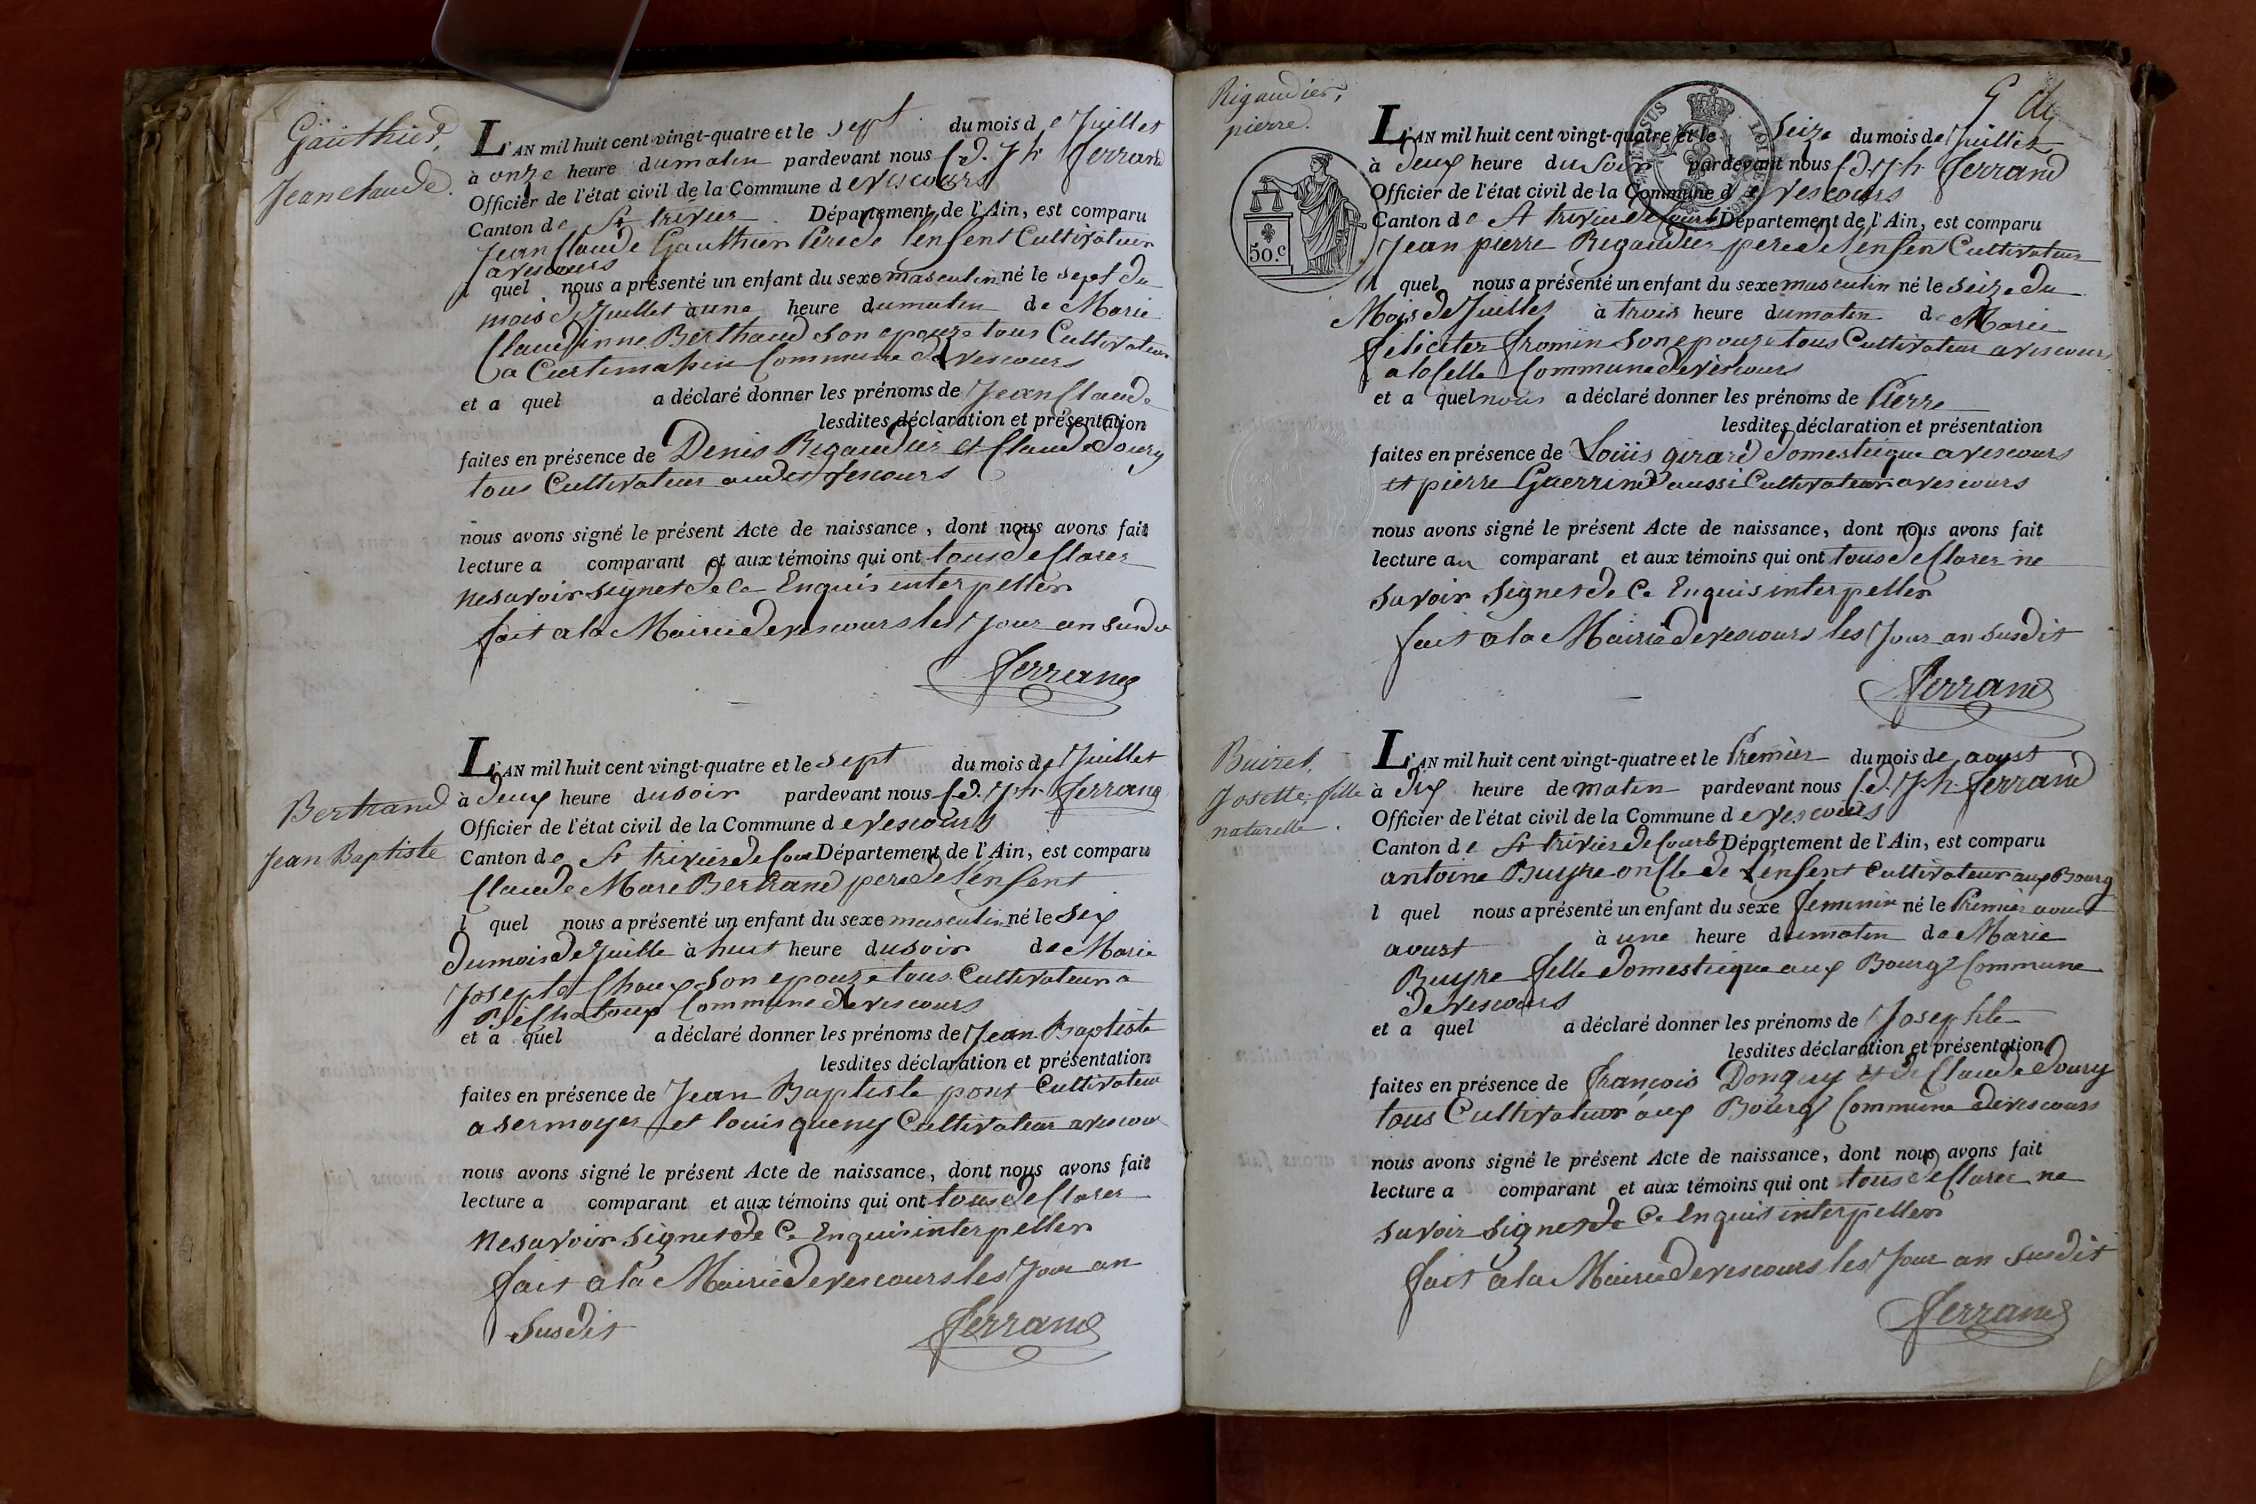 Gauthier,
Jean claude.
L'AN mil huit cent vingt-quatre et le sept du mois de Juillet
à onze heure du matin pardevant nous Cd. Jh Ferrand
Officier de l'état civil de la Commune de vescours
Canton de St trivier Département de l'Ain, est comparu
Jean Claude Gauthier Pere de l'enfent Cultivateur
a vescours
l quel nous a présenté un enfant du sexe masculin né le sept du
mois de Juillet à une heure du matin de Marie
Claudinne Berthaud son epouze tous Cultivateur
a Commune de vescours
et a quel a déclaré donner les prénoms de Jean Claude
lesdites déclaration et présentation
faites en présence de Denis Rigaudier et Claude Doury
tous Cultivateur audit vescours
nous avons signé le présent Acte de naissance, dont nous avons fait
lecture a comparant et aux témoins qui ont tous de Clarer
ne savoir signet de Ce Enquis interpeller
fait a la Mairie de vescours les Jour an susdit
Ferrand
Bertrand
Jean Baptiste
L'AN mil huit cent vingt-quatre et le sept du mois de Juillet
à deux heure du soir pardevant nous Cd. Jh Ferrand
Officier de l'état civil de la Commune de vescours
Canton de St trivier de Cour Département de l'Ain, est comparu
Claude Marie Bertrand pere de l'enfent
l quel nous a présenté un enfant du sexe masculin né le Six
du mois de Juille à huit heure du soir de Marie
Josepte Chaux son epouze tous Cultivateur a
Commune de vescours
et a quel a déclaré donner les prénoms de Jean Baptiste
lesdites déclaration et présentation
faites en présence de Jean Baptiste pont Cultivateur
a sermoyer et louis queny Cultivateur a vescour
nous avons signé le présent Acte de naissance, dont nous avons fait
lecture a comparant et aux témoins qui ont tous de Clarer
ne savoir signet de Ce Enquis interpeller
fait a la Mairie de vescours les Jour an
Susdit Ferrand
Rigaudier,
pierre.
50.c
L'AN mil huit cent vingt-quatre et le Seize du mois de Juillet
à deux heure du Soir pardevant nous Cd. Jh Ferrand
Officier de l'état civil de la Commune de vescours
Canton de St trivier de Courts Département de l'Ain, est comparu
Jean pierre Rigaudier pere de l'enfen Cultivateur
l quel nous a présenté un enfant du sexe masculin né le seize du
Mois de Juillet à trois heure du matin de Marie
feliciter fromin son epouze tous Cultivateur a vescours
a la Celle Commune de vescours
et a quel nous a déclaré donner les prénoms de Pierre
lesdites déclaration et présentation
faites en présence de Louis girard domestique a vescours
et pierre Guerrin aussi Cultivateur a vescours
nous avons signé le présent Acte de naissance, dont nous avons fait
lecture au comparant et aux témoins qui ont tous de Clarer ne
savoir signet de Ce Enquis interpeller
fait a la Mairie de vescours les Jour an susdit
Ferrand
Buiret,
Josette, fille
naturelle.
L'AN mil huit cent vingt-quatre et le Premier du mois de aoust
à dix heure de matin pardevant nous Cd. Jh. Ferrand
Officier de l'état civil de la Commune de vescours
Canton de St trivier de Courts Département de l'Ain, est comparu
antoine Buyre oncle de l'enfent Cultivateur aux Bourg
l quel nous a présenté un enfant du sexe feminin né le Premier aoust
aoust à une heure du matin de Marie
Buyre fille domestique aux Bourg Commune
de vescours
et a quel a déclaré donner les prénoms de Josephte
lesdites déclaration et présentation
faites en présence de francois Donguy et de Claude Doury
tous Cultivateur aux Bourg Commune de vescours
nous avons signé le présent Acte de naissance, dont nous avons fait
lecture a comparant et aux témoins qui ont tous de Clarer ne
savoir signet de Ce Enquis interpeller
fait a la Mairie de vescours les Jour an susdit
Ferrand